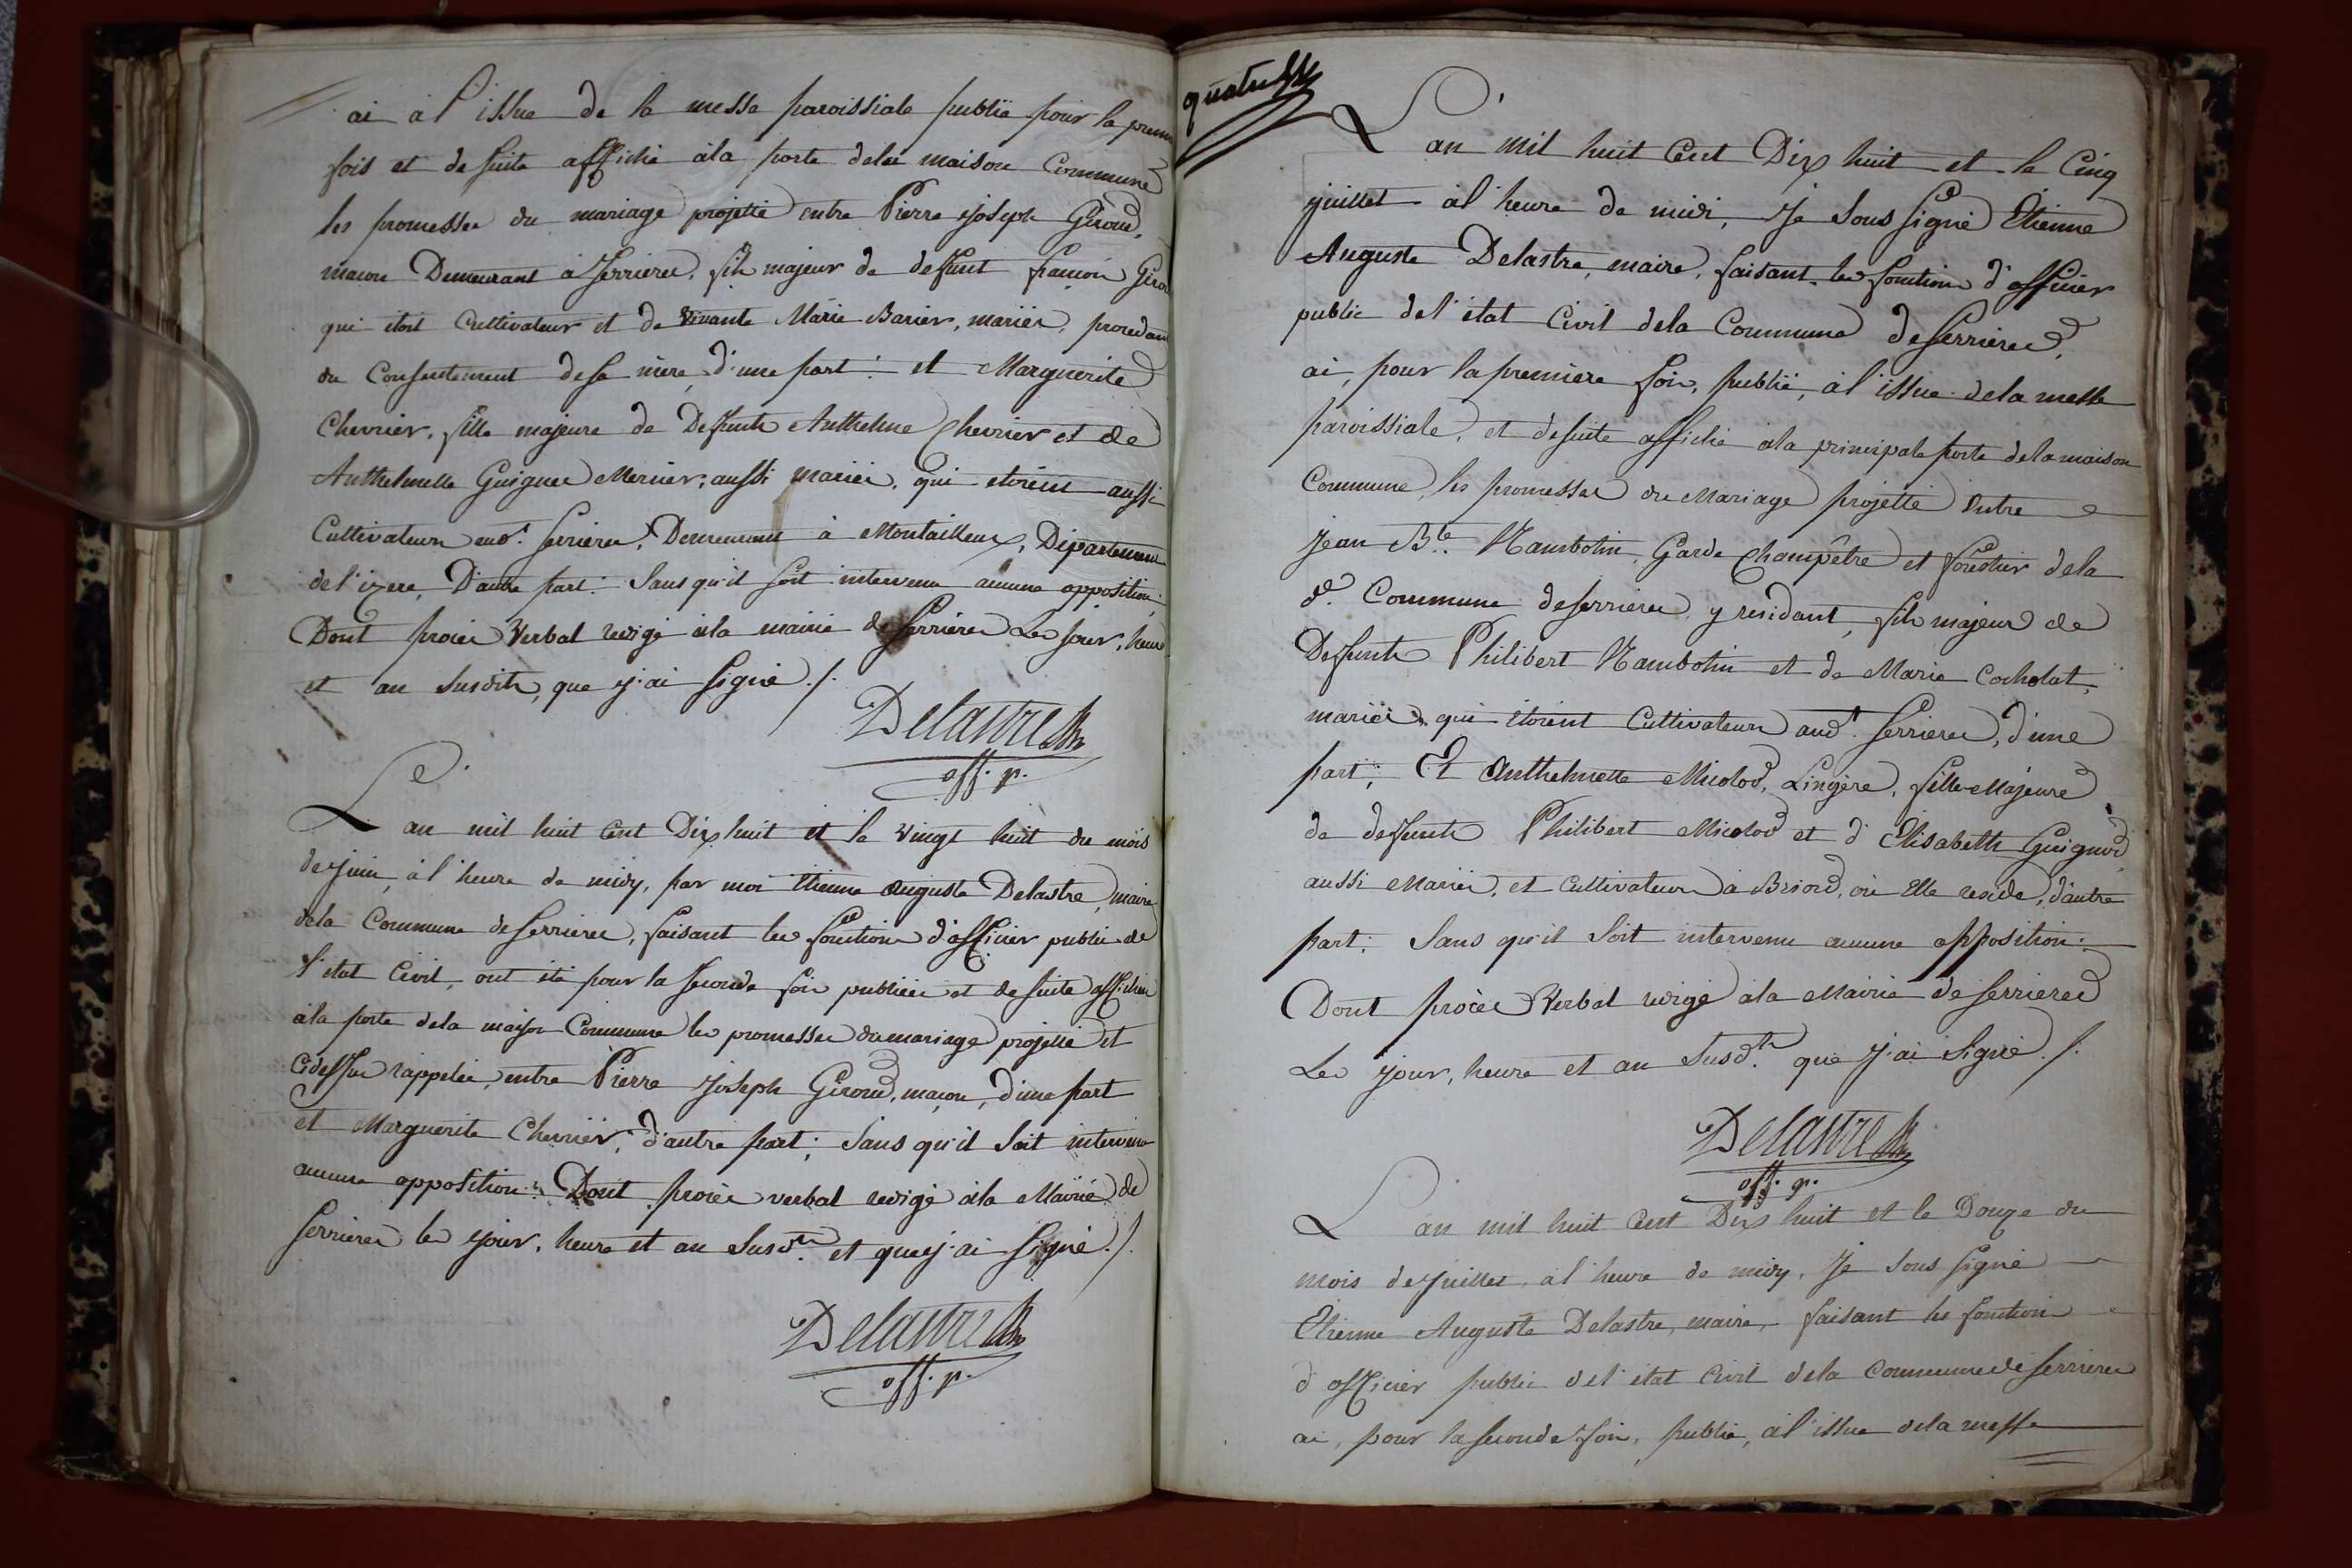 ai à l'issue de la messe paroissiale publié pour la prem
fois et de suite affiché àla porte dela maison Commune
les promesses du mariage projetté entre Pierre Joseph Giroud,
macon Demeurant à Serrieres, fils majeur de deffunt françois Giro
qui étoit Cultivateur et de vivante Marie Barier, mariés, procedan
du Consentement desa mère, d'une part: et Marguerite
Chevrier, fille majeure de Deffunts Anthelme Chevrier et de
Anthelmette Guignes Mercier, aussi mariés, qui étoient aussi
Cultivateurs aud.t Serrieres, Demeurant à Montailleux, Département
del'izere, D'autre part: Sans qu'il soit intervenu aucune opposition;
Dont procès Verbal redigé àla mairie de Serrieres Les jour, heure
et an susdits, que j'ai signé ./.
Delastre
off. p.
L'an mil huit cent Dix huit et le vingt huit du mois
deJuin, àl'heure de midy, par moi Etienne Auguste Delastre, maire
dela Commune deSerrieres, faisant les fonctions d'officier public de
l'état Civil, ont été pour la seconde fois publiées et de suite affichées
àla porte dela maison Commune les promesses dumariage projetté et
cidessus rappelées, entre Pierre Joseph Giroud, maçon, d'une part
et Marguerite Chevrier, d'autre part; Sans qu'il soit intervenu
aucune opposition; Dont procès verbal redigé àla Mairie de
Serrieres les jour, heure et an susd.ts et que j'ai signé ./.
Delastre
off. p.
quatre
L'an mil huit Cent Dix huit et le Cinq
juillet àl'heure de midi, Je Sous Signé Etienne
Auguste Delastre, maire, faisant les fonctions d'officier
public del'état Civil dela Commune deSerrieres,
ai, pour la première fois, publié, àl'issue dela messe
paroissiale, et desuite affiché àla principale porte delamaison
Commune, les promesses du Mariage projetté Entre
Jean B.te Nambotin, Garde Champêtre et forêstier dela
d.e Commune deSerrieres y residant, fils majeur de
Deffunts Philibert Nambotin et de Marie Cocholat,
mariés, qui étoient Cultivateurs aud.t Serrieres, d'une
part; Et Anthelmette Micolod, Lingère, fille Majeure
de deffunts Philibert Micolod et d'Elisabeth Guignod,
aussi Mariés, et Cultivateurs à Briord, où Elle reside, d'autre
part; Sans qu'il Soit intervenu aucune opposition;
Dont procès Verbal redigé àla Mairie deSerrieres
Les jour, heure et an Susd.ts que J'ai Signé ./.
Delastre
off. p.
L'an mil huit Cent Dix huit et le Douze du
mois deJuillet, àl'heure de midy, Je Sous signé
Etienne Auguste Delastre, maire, faisant les fonctions
d'officier public del'état Civil dela Commune deSerrieres
ai, pour la seconde fois, publié, àl'issue dela messe